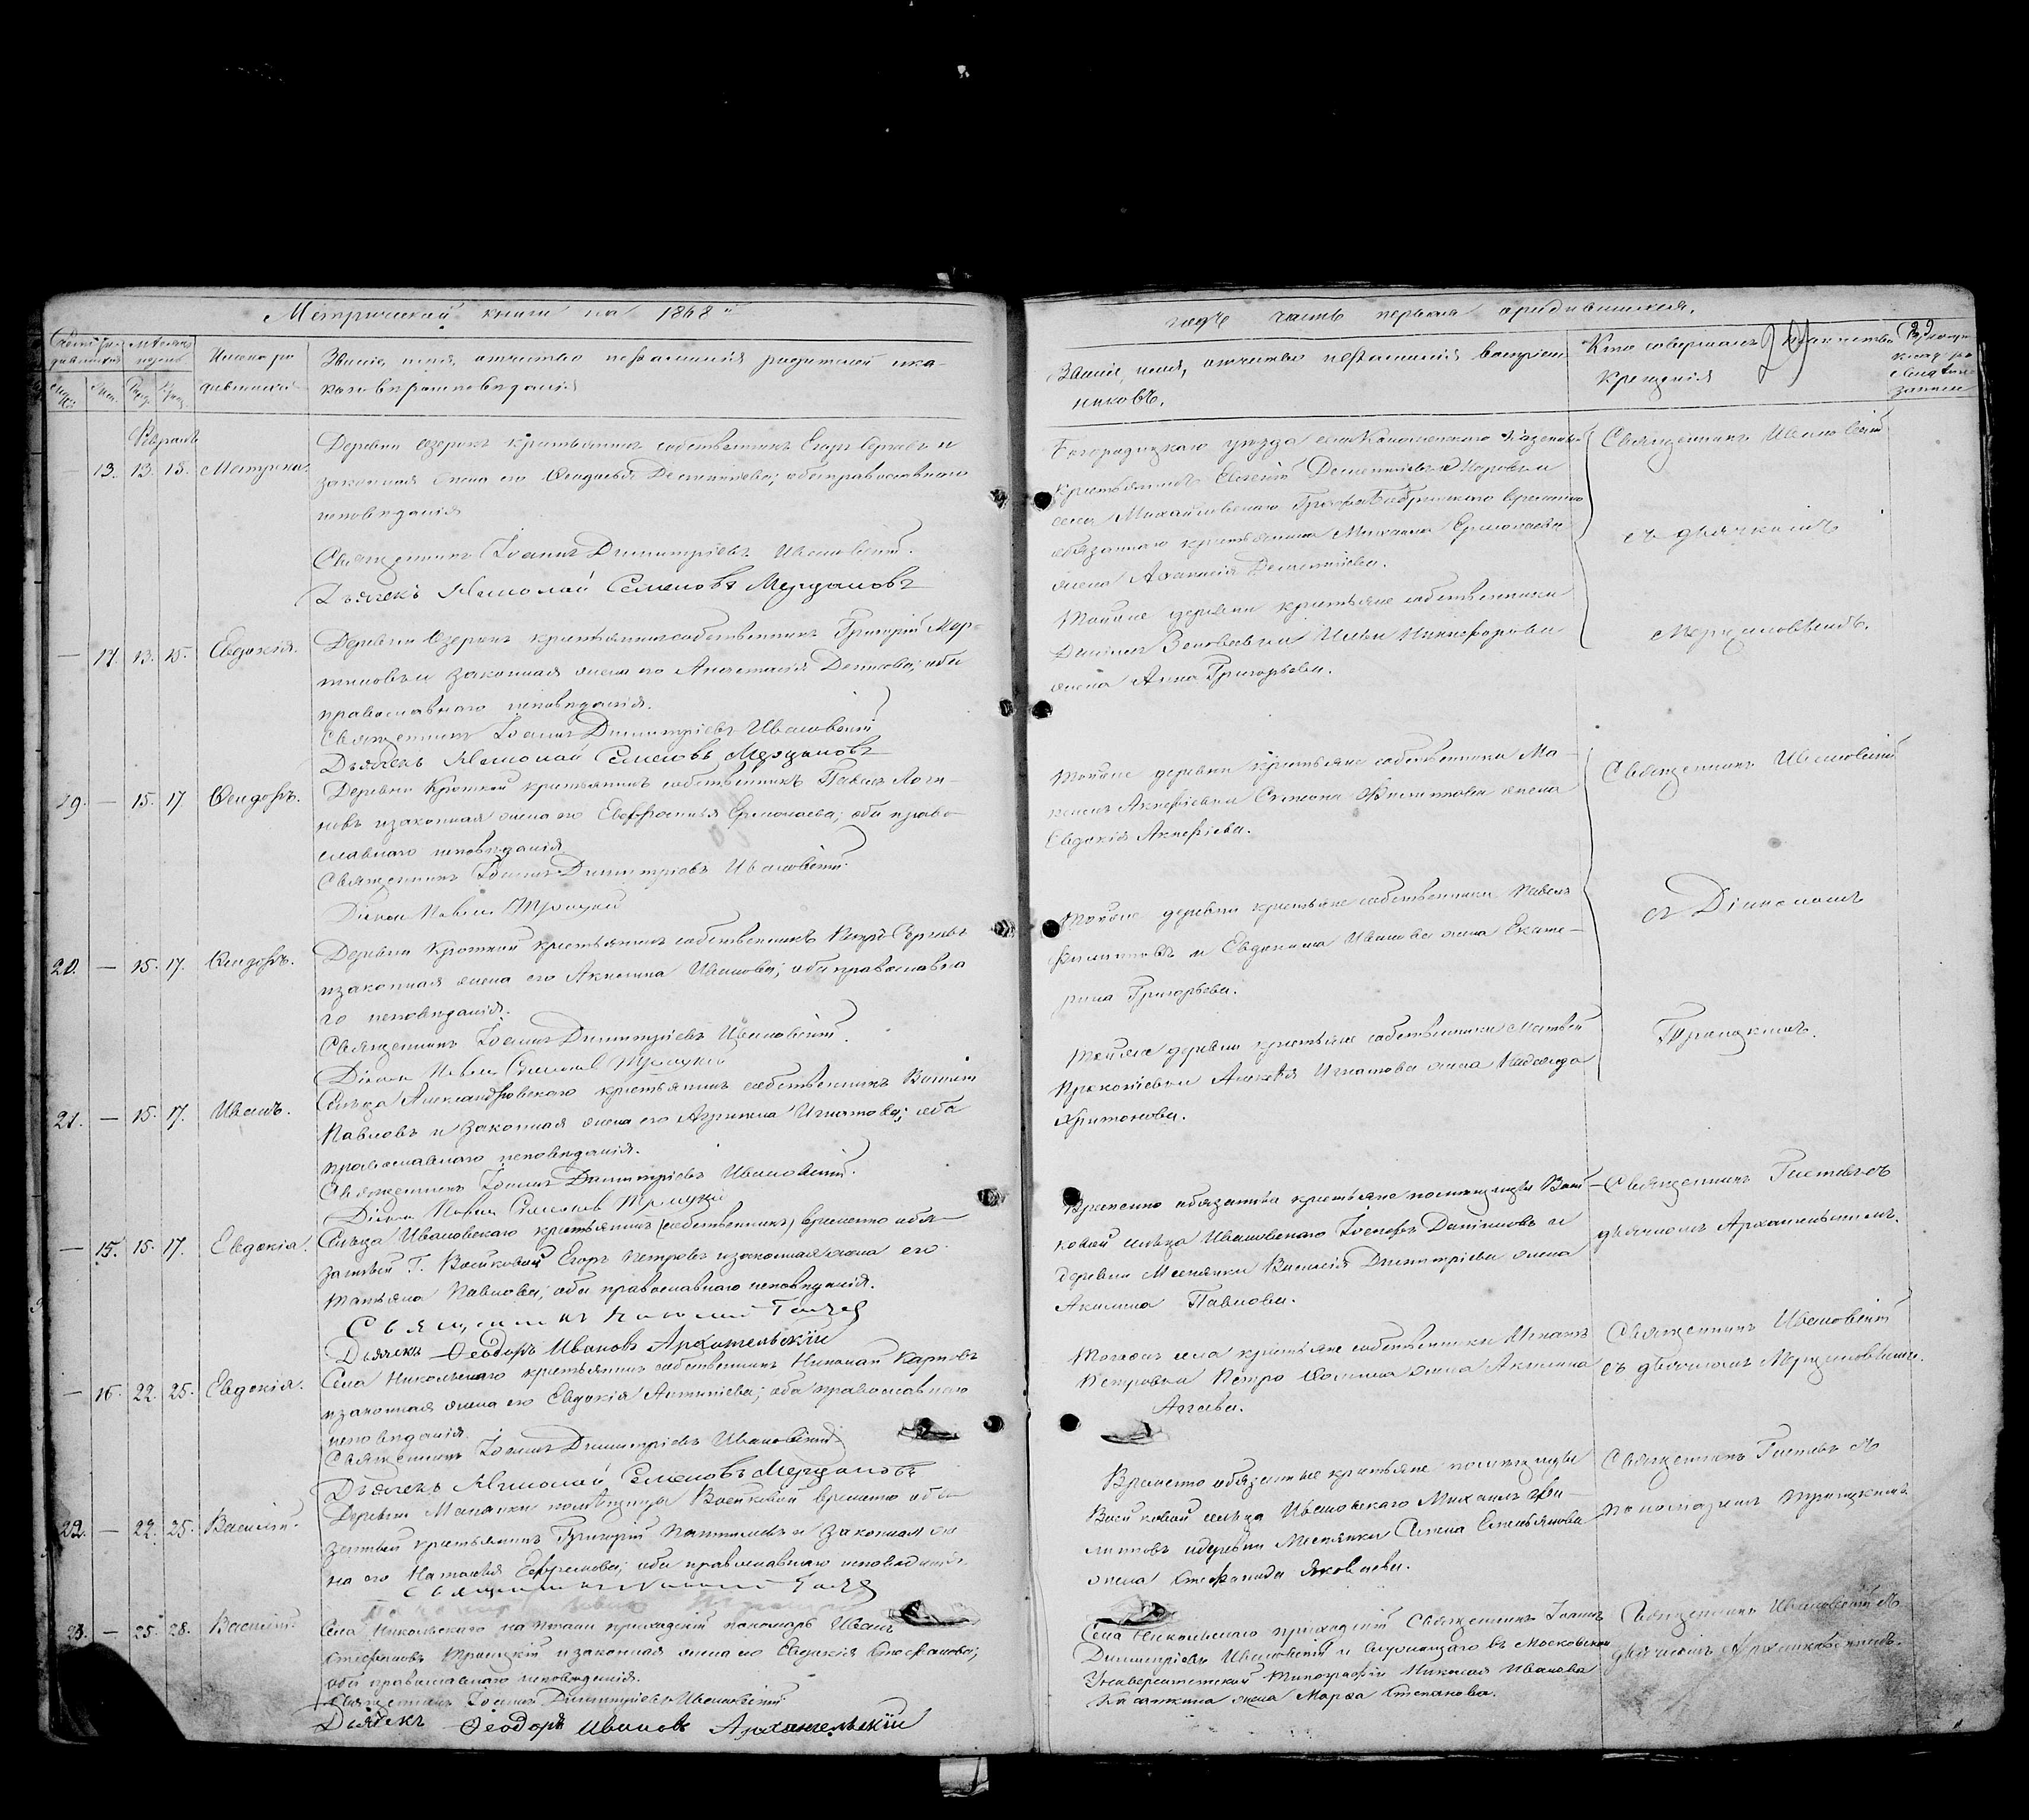 Метрической книги на 1868й
годъ часть первая о родившихся.
Счетъ ро-
дившихся
Мѣсяцъ
и день
Имена ро
дившихся
Званіе, имя, отчество и фамилія родителей и ка-
кого вѣроисповѣданія
Званіе, имя, отчество и фамилія воспріем
никовъ.
Кто совершалъ таинство
крещенія
29
Февраль
13. 13. 15. Матрона.
Деревни Озерокъ крестьянинъ собственникъ Егоръ Сергѣевъ и
законная жена его Феодосья Дементьева; оба православнаго
исповѣданія
Священникъ Іоаннъ Димитріевъ Ивановскій.
Дьячекъ Николай Семеновъ Мерцаловъ
Богородицкаго уѣзда села
крестьянинъ Евсевій Дементьевъ и
села Михайловскаго Графа Бобринскаго временно
обязаннаго крестьянина Михаила Ермолаева
жена Афанасія Дементьева.
Священникъ Ивановскій
съ дьячкомъ
Мерцаловымъ.
— 14. 13. 15. Евдокія.
Деревни Озерокъ крестьянинъ собственникъ Григорій Мар-
тиновъ и законная жена его Анастасія Денисова; оба
православнаго исповѣданія.
Священникъ Іоаннъ Димитріевъ Ивановскій
Дьячекъ Николай Семеновъ Мерцаловъ
Тойже деревни крестьяне собственники
Даніилъ Зиновьевъ и Ильи Никифорова
жена Анна Григорьева.
19. — 15. 17. Феодоръ.
Деревни Кроткой крестьянинъ собственникъ Павелъ Логи-
новъ и законная жена его Евфросинья Ермолаева; оба право-
славнаго исповѣданія
Священникъ Іоаннъ Димитріевъ Ивановскій.
Діаконъ Павелъ Троицкій
Тойже деревни крестьяне собственники Ма-
Акифьевъ и Симеона Филиппова жена
Евдокія Акифіева.
Священникъ Ивановскій
съ Діакономъ
Троицкимъ.
20. — 15. 17. Феодоръ.
Деревни Кроткой крестьянинъ собственникъ Петръ Сергѣевъ
и законная жена его Акилина Иванова; оба православна
го исповѣданія.
Священникъ Іоаннъ Димитріевъ Ивановскій.
Діаконъ Павелъ Симеоновъ Троицкій
Тойже деревни крестьяне собственники Павелъ
Филипповъ и Евдокима Иванова жена Екате-
рина Григорьева.
21. — 15. 17. Иванъ.
Сельца Александровского крестьянинъ собственникъ Василій
Павловъ и законная жена его Агрипина Игнатова; оба
православнаго исповѣданія.
Священникъ Іоаннъ Димитріевъ Ивановскій.
Діаконъ Павелъ Симеоновъ Троицкій
Тойже деревни крестьяне собственники Матвей
Прокопіевъ и Алексѣя Игнатова жена Надежда
Харитонова.
— 15. 15. 17. Евдокія.
Сельца Ивановскаго крестьянинъ (собственникъ) временно обя-
занный Г. Воейковой Егоръ Петровъ и законная жена его
Татьяна Павлова; оба православнаго исповѣданія.
Священникъ
Дьячекъ Ѳеодоръ Ивановъ Архангельскій
Временно обязанные крестьяне помещицы Воей-
ковой сельца Ивановскаго Іосифъ Даниловъ и
деревни Василія Димитріева жена
Акилина Павлова.
Священникъ Гастевъ съ
дьячкомъ Архангельскимъ.
— 16. 22. 25. Евдокія.
Села Никольскаго крестьянинъ собственникъ Николай Карповъ
и законная жена его Евдокія Антипіева; оба православнаго
исповѣданія
Священникъ Іоаннъ Димитріевъ Ивановскій.
Дьячекъ Николай Семеновъ Мерцаловъ
Тогожъ села крестьяне собственники
Петровъ и Петра Фомина жена Акилина
Агѣева.
Священникъ Ивановскій
съ дьячкомъ Мерцаловымъ.
22. — 22. 25. Василій.
Деревни помѣщицы Воейковой временно обя-
занный крестьянинъ Григорій и законная же
на его Наталья Ефремова; оба православнаго исповѣданія.
Священникъ
Временно обязанные крестьяне помещицы
Воейковой сельца Ивановскаго Михаилъ Фи-
липповъ и деревни Емельянова
жена Стефанида Яковлева.
Священникъ Гастевъ съ
пономаремъ Троицкимъ.
23. — 25. 28. Василій.
Села Никольскаго приходскій пономарь Иванъ
Стефановъ Троицкій и законная жена его Евдокія Стефанова;
оба православнаго исповѣданія.
Священникъ Іоаннъ Димитріевъ Ивановскій
Дьячекъ Ѳеодоръ Ивановъ Архангельскій
Села Никольскаго приходскій Священникъ Іоаннъ
Димитріевъ Ивановскій и служащаго въ Московской
Университетской Типографіи Николая Иванова
жена Марѳа Степанова.
Священникъ Ивановскій съ
дьячкомъ Архангельскимъ.